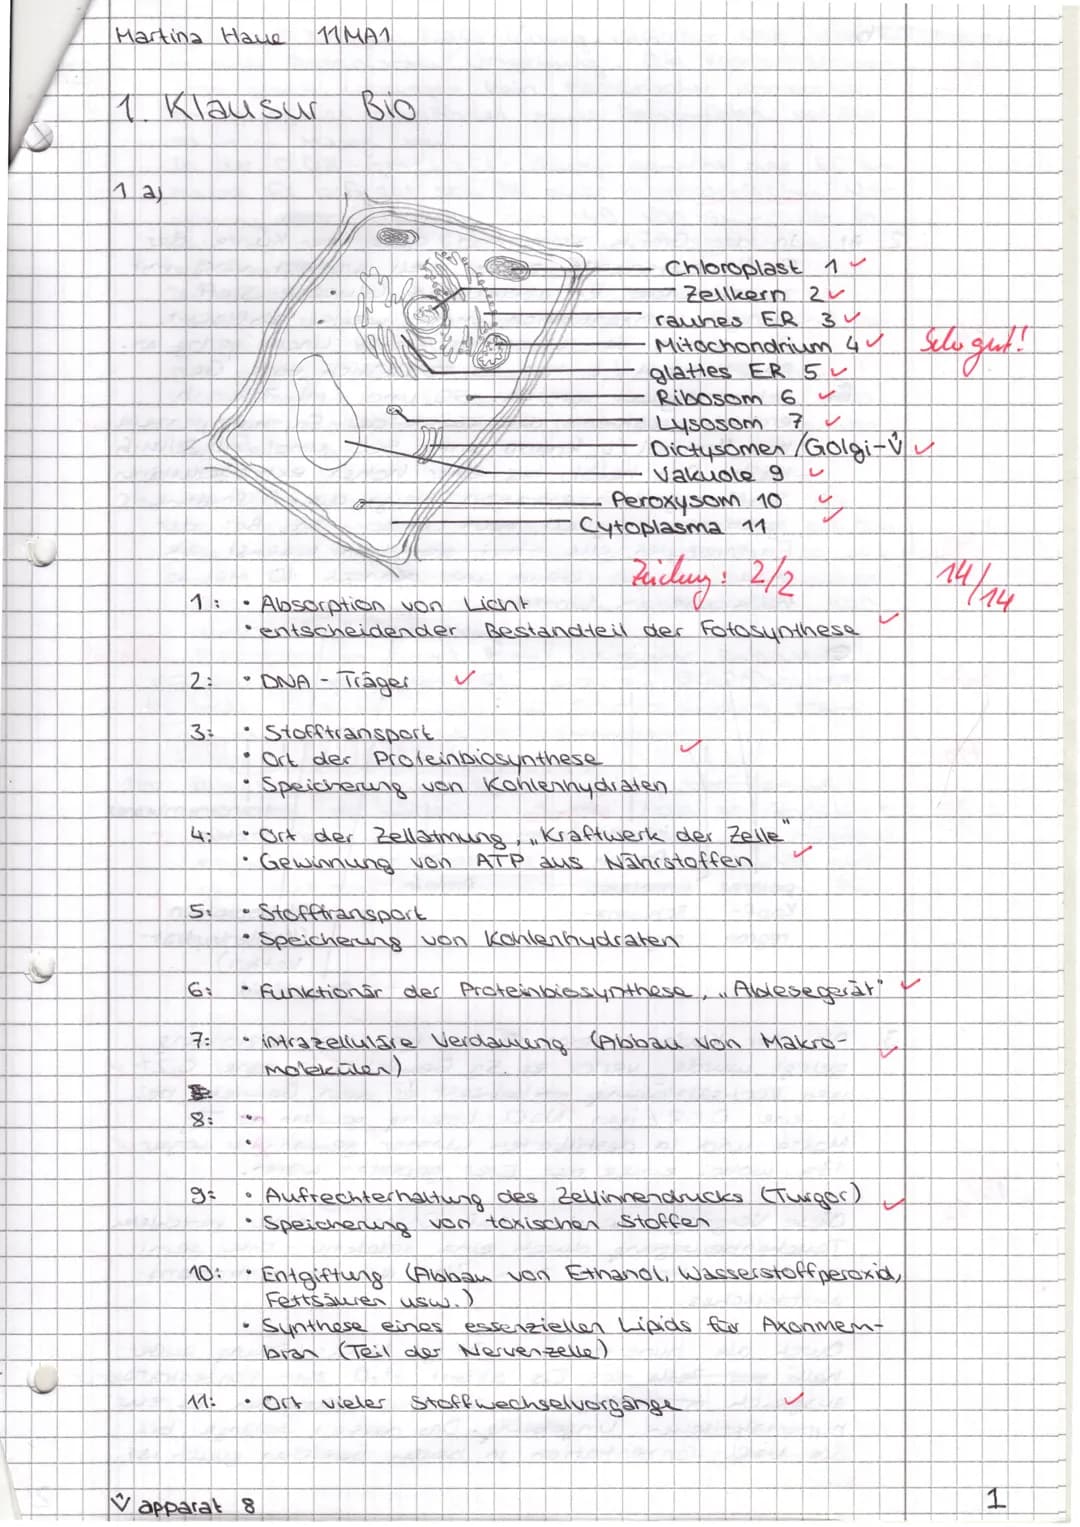 Martina Haue 11MA1
1. Klausur Bio
1 a)
Chloroplast 1 ✓
Zellkern 2 ✓
rauhes ER 3 ✓
Mitochondrium 4 ✓ Sehr gut!
glattes ER 5 ✓
Ribosom 6 ✓
Lysosom 7 ✓
Dictysomen/Golgi-V̂ ✓
Vakuole 9 ✓
Peroxysom 10 ✓
Cytoplasma 11 ✓
Zeichnung: 2/2 14/14
1: • Absorption von Licht
• entscheidender Bestandteil der Fotosynthese ✓
2: • DNA - Träger ✓
3: • Stofftransport
• Ort der Proteinbiosynthese ✓
• Speicherung von Kohlenhydraten
4: • Ort der Zellatmung, „Kraftwerk der Zelle"
• Gewinnung von ATP aus Nährstoffen ✓
5: • Stofftransport
• Speicherung von Kohlenhydraten
6: • Funktionär der Proteinbiosynthese, „Ablesegerät" ✓
7: • intrazelluläre Verdauung (Abbau von Makro-
molekülen) ✓
8: •
•
9: • Aufrechterhaltung des Zellinnendrucks (Turgor) ✓
• Speicherung von toxischen Stoffen
10: • Entgiftung (Abbau von Ethanol, Wasserstoffperoxid,
Fettsäuren usw.)
• Synthese eines essenziellen Lipids für Axonmem-
bran (Teil der Nervenzelle)
11: • Ort vieler Stoffwechselvorgänge ✓
V̂ apparat 8
1